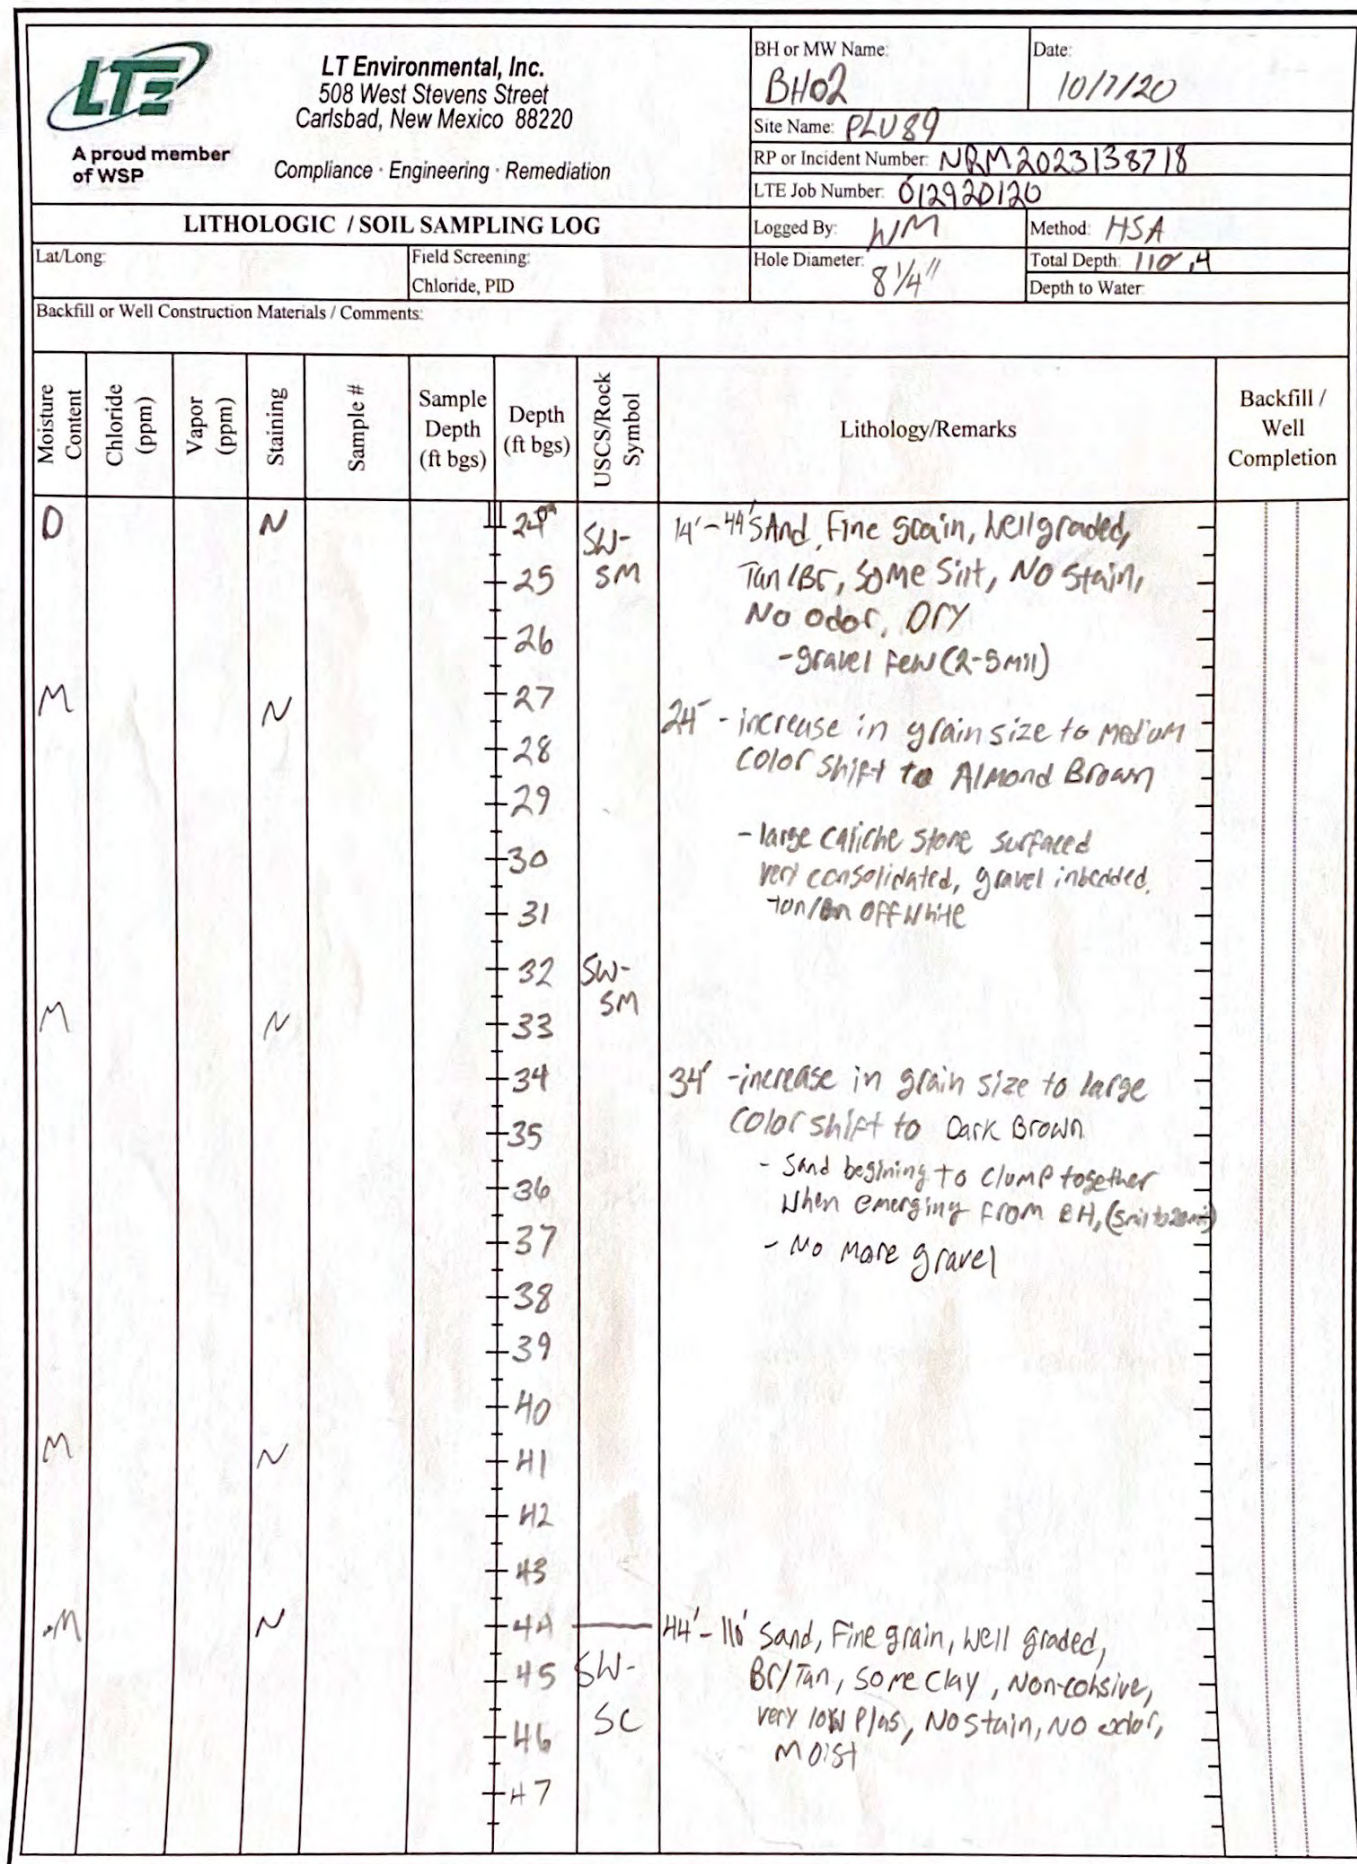 LTE
A proud member
of WSP
LT Environmental, Inc.
508 West Stevens Street
Carlsbad, New Mexico 88220
Compliance · Engineering · Remediation
BH or MW Name:
BH02
Date:
10/7/20
Site Name: PLU89
RP or Incident Number: NRM2023138718
LTE Job Number: 012920120
LITHOLOGIC / SOIL SAMPLING LOG
Logged By: WM
Method: HSA
Lat/Long:
Field Screening:
Chloride, PID
Hole Diameter: 8 1/4"
Total Depth: 110'
Depth to Water:
Backfill or Well Construction Materials / Comments:
Moisture Content
Chloride (ppm)
Vapor (ppm)
Staining
Sample #
Sample Depth (ft bgs)
Depth (ft bgs)
USCS/Rock Symbol
Lithology/Remarks
Backfill / Well Completion
D N 24 SW- 14'-44' SAnd, Fine grain, well graded,
25 SM Tan/Br, some silt, No stain,
No odor, Dry
26
- gravel few (2-5mil)
M N 27
24' - increase in grain size to medium
28 color shift to Almond Brown
29
- large caliche stone surfaced
30 very consolidated, gravel inbedded,
31 tan/Bn off white
32 SW-
M N 33 SM
34 34' - increase in grain size to large
35 color shift to Dark Brown
- Sand begining to clump together
36 when emerging from BH,
37 - No more gravel
38
39
40
M N 41
42
43
M N 44 44'-110' Sand, Fine grain, well graded,
45 SW- Br/Tan, some clay, Non-cohsive,
46 SC very low Plas, No stain, No odor,
moist
47